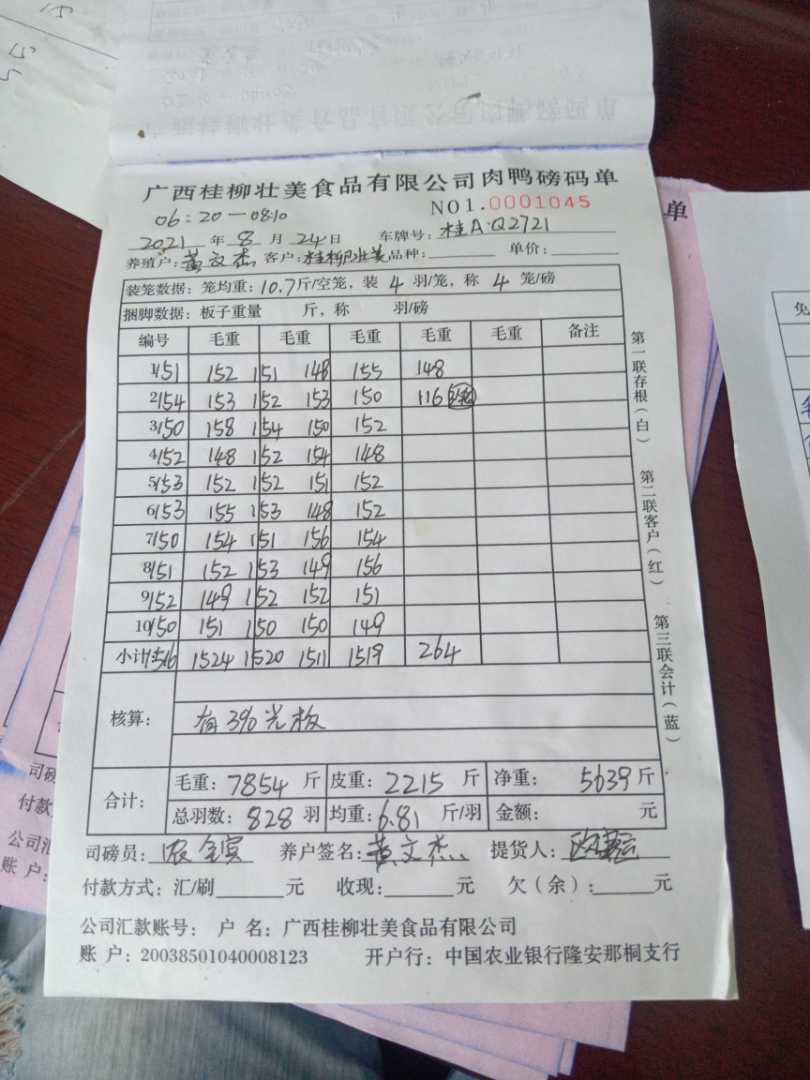 广西桂柳壮美食品有限公司肉鸭磅码单
06:20—08:10 NO1.0001045
2021年8月24日 车牌号:桂A·Q2721
养殖户:黄文杰 客户:桂柳壮美 品种: 单价:
装笼数据:笼均重:10.7斤/空笼,装4羽/笼,称4笼/磅
捆脚数据:板子重量 斤,称 羽/磅
编号 毛重 毛重 毛重 毛重 毛重 备注
1 151 152 151 148 155 148
2 154 153 152 153 150 116
3 150 158 154 150 152
4 152 148 152 154 148
5 153 152 152 151 152
6 153 155 153 148 152
7 150 154 151 156 154
8 151 152 153 149 156
9 152 149 152 152 151
10 150 151 150 150 149
小计 1516 1524 1520 1511 1519 264
核算: 有3%光板
合计: 毛重:7854斤 皮重:2215斤 净重:5639斤
总羽数:828羽 均重:6.81斤/羽 金额: 元
司磅员: 养户签名:黄文杰 提货人:
付款方式:汇/刷 元 收现: 元 欠(余): 元
公司汇款账号: 户 名:广西桂柳壮美食品有限公司
账 户:20038501040008123 开户行:中国农业银行隆安那桐支行
第一联存根(白)
第二联客户(红)
第三联会计(蓝)
单
免
司磅
付款
公司
账 户: